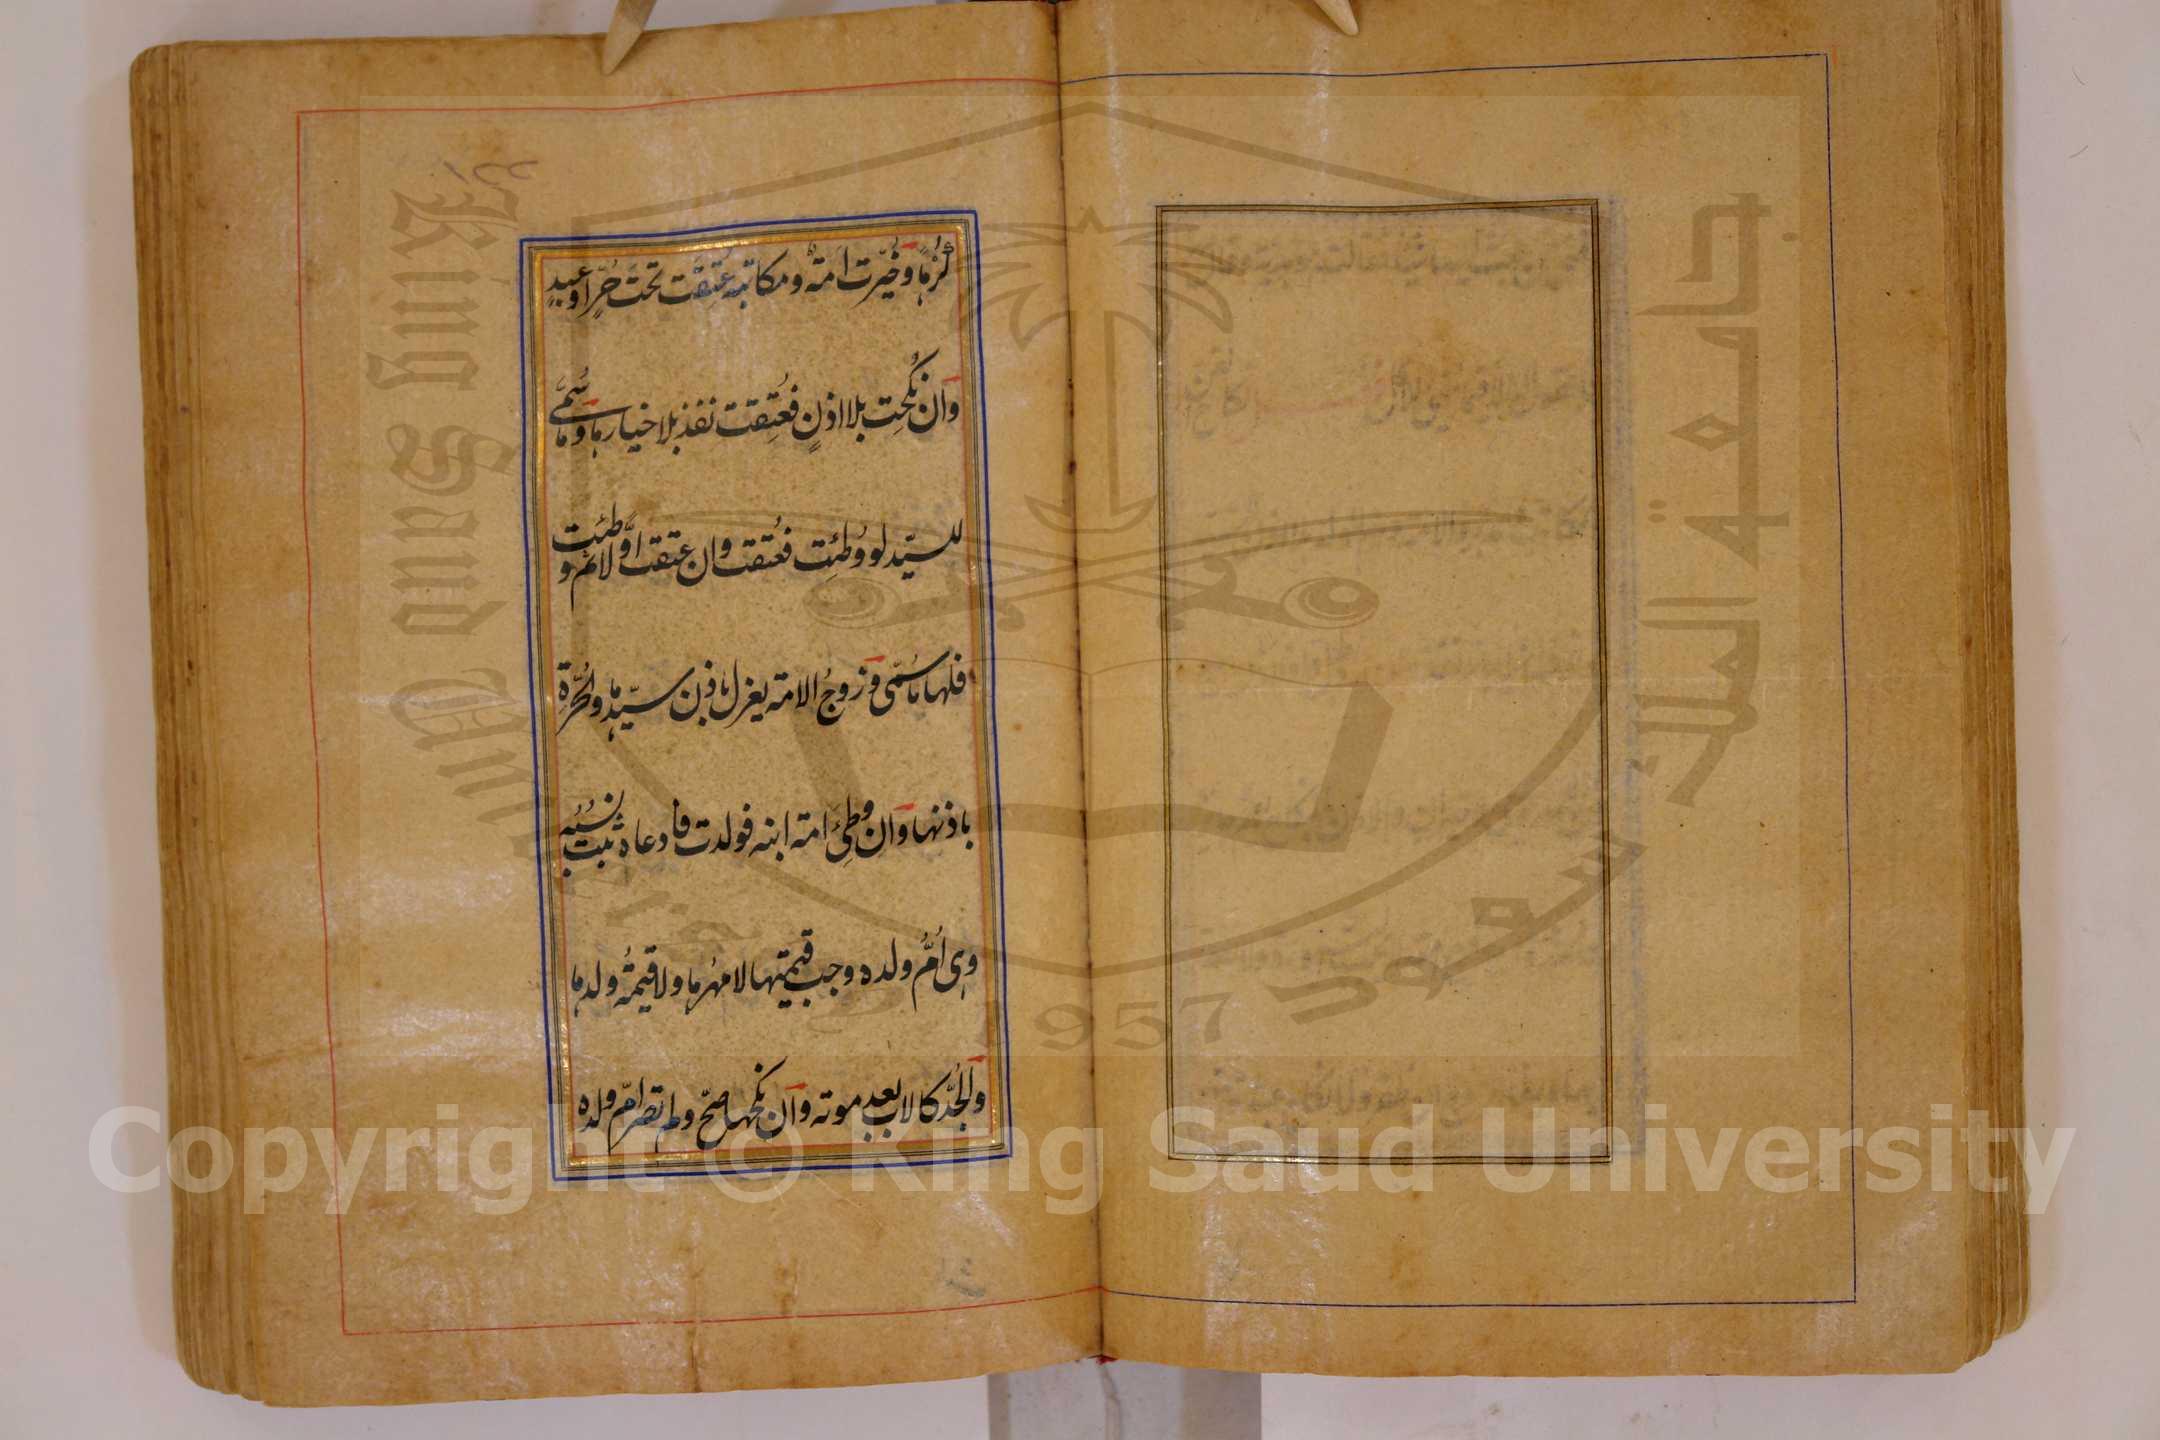 وخُيّرت امةٌ ومكاتبة عُتِقَت تحت حُرٍّ او عبدٍ
وان نُكحت بلا اذنٍ فعُتِقت نفذ بلا خيار ها وما سُمّى
للسيّد لو وُطِئت فعُتقت وان عتقت اوّلا ثم وطئت
فلها ما سُمّى وزوجُ الامة يعزل باذن سيّدها والحُرّة
باذنها وان وطِئَ امة ابنه فولدت فادعاه ثبت نسبُه
وهى اُمُّ ولده وجب قيمتها لا مهُرها ولا قيمةُ ولدها
والجدّ كالاب بعد موته وان نكحها صحّ ولم تصر امّ ولده
King Saud University
جامعة الملك سعود
1957
Copyright © King Saud University